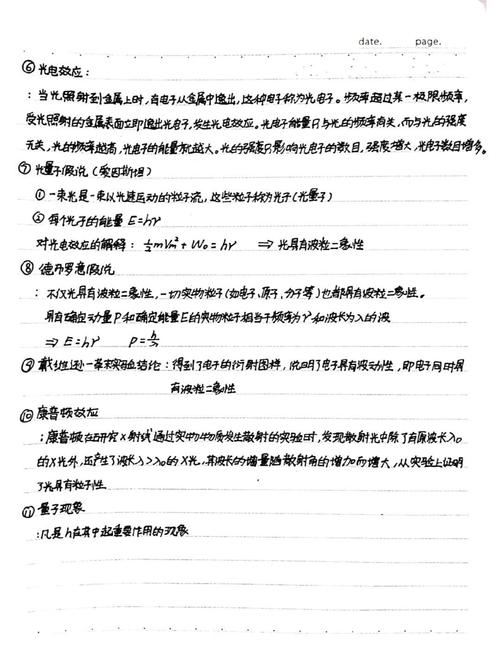 date. page.
⑥ 光电效应:
: 当光照射到金属上时,有电子从金属中逸出,这种电子称为光电子。频率超过某一极限频率,
受光照射的金属表面立即逸出光电子,发生光电效应。光电子能量只与光的频率有关,而与光的强度
无关,光的频率越高,光电子的能量就越大。光的强度只影响光电子的数目,强度增大,光电子数目增多。
⑦ 光量子假说(爱因斯坦)
① 一束光是一束以光速运动的粒子流,这些粒子称为光子(光量子)
② 每个光子的能量 E=hγ
对光电效应的解释: ½mVm²+W₀=hγ ⇒ 光具有波粒二象性
⑧ 德布罗意假说
: 不仅光具有波粒二象性,一切实物粒子(如电子、原子、分子等)也都具有波粒二象性。
具有确定动量P和确定能量E的实物粒子相当于频率为γ和波长为λ的波
⇒ E=hγ P=h/λ
⑨ 戴维逊—革末实验结论: 得到了电子的衍射图样,说明了电子具有波动性,即电子同时具
有波粒二象性
⑩ 康普顿效应
: 康普顿在研究X射线通过实物物质发生散射的实验时,发现散射光中除了有原波长λ0
的X光外,还产生了波长λ>λ0的X光,其波长的增量随散射角的增加而增大,从实验上证明
了光具有粒子性
⑪ 量子现象
:凡是h在其中起重要作用的现象